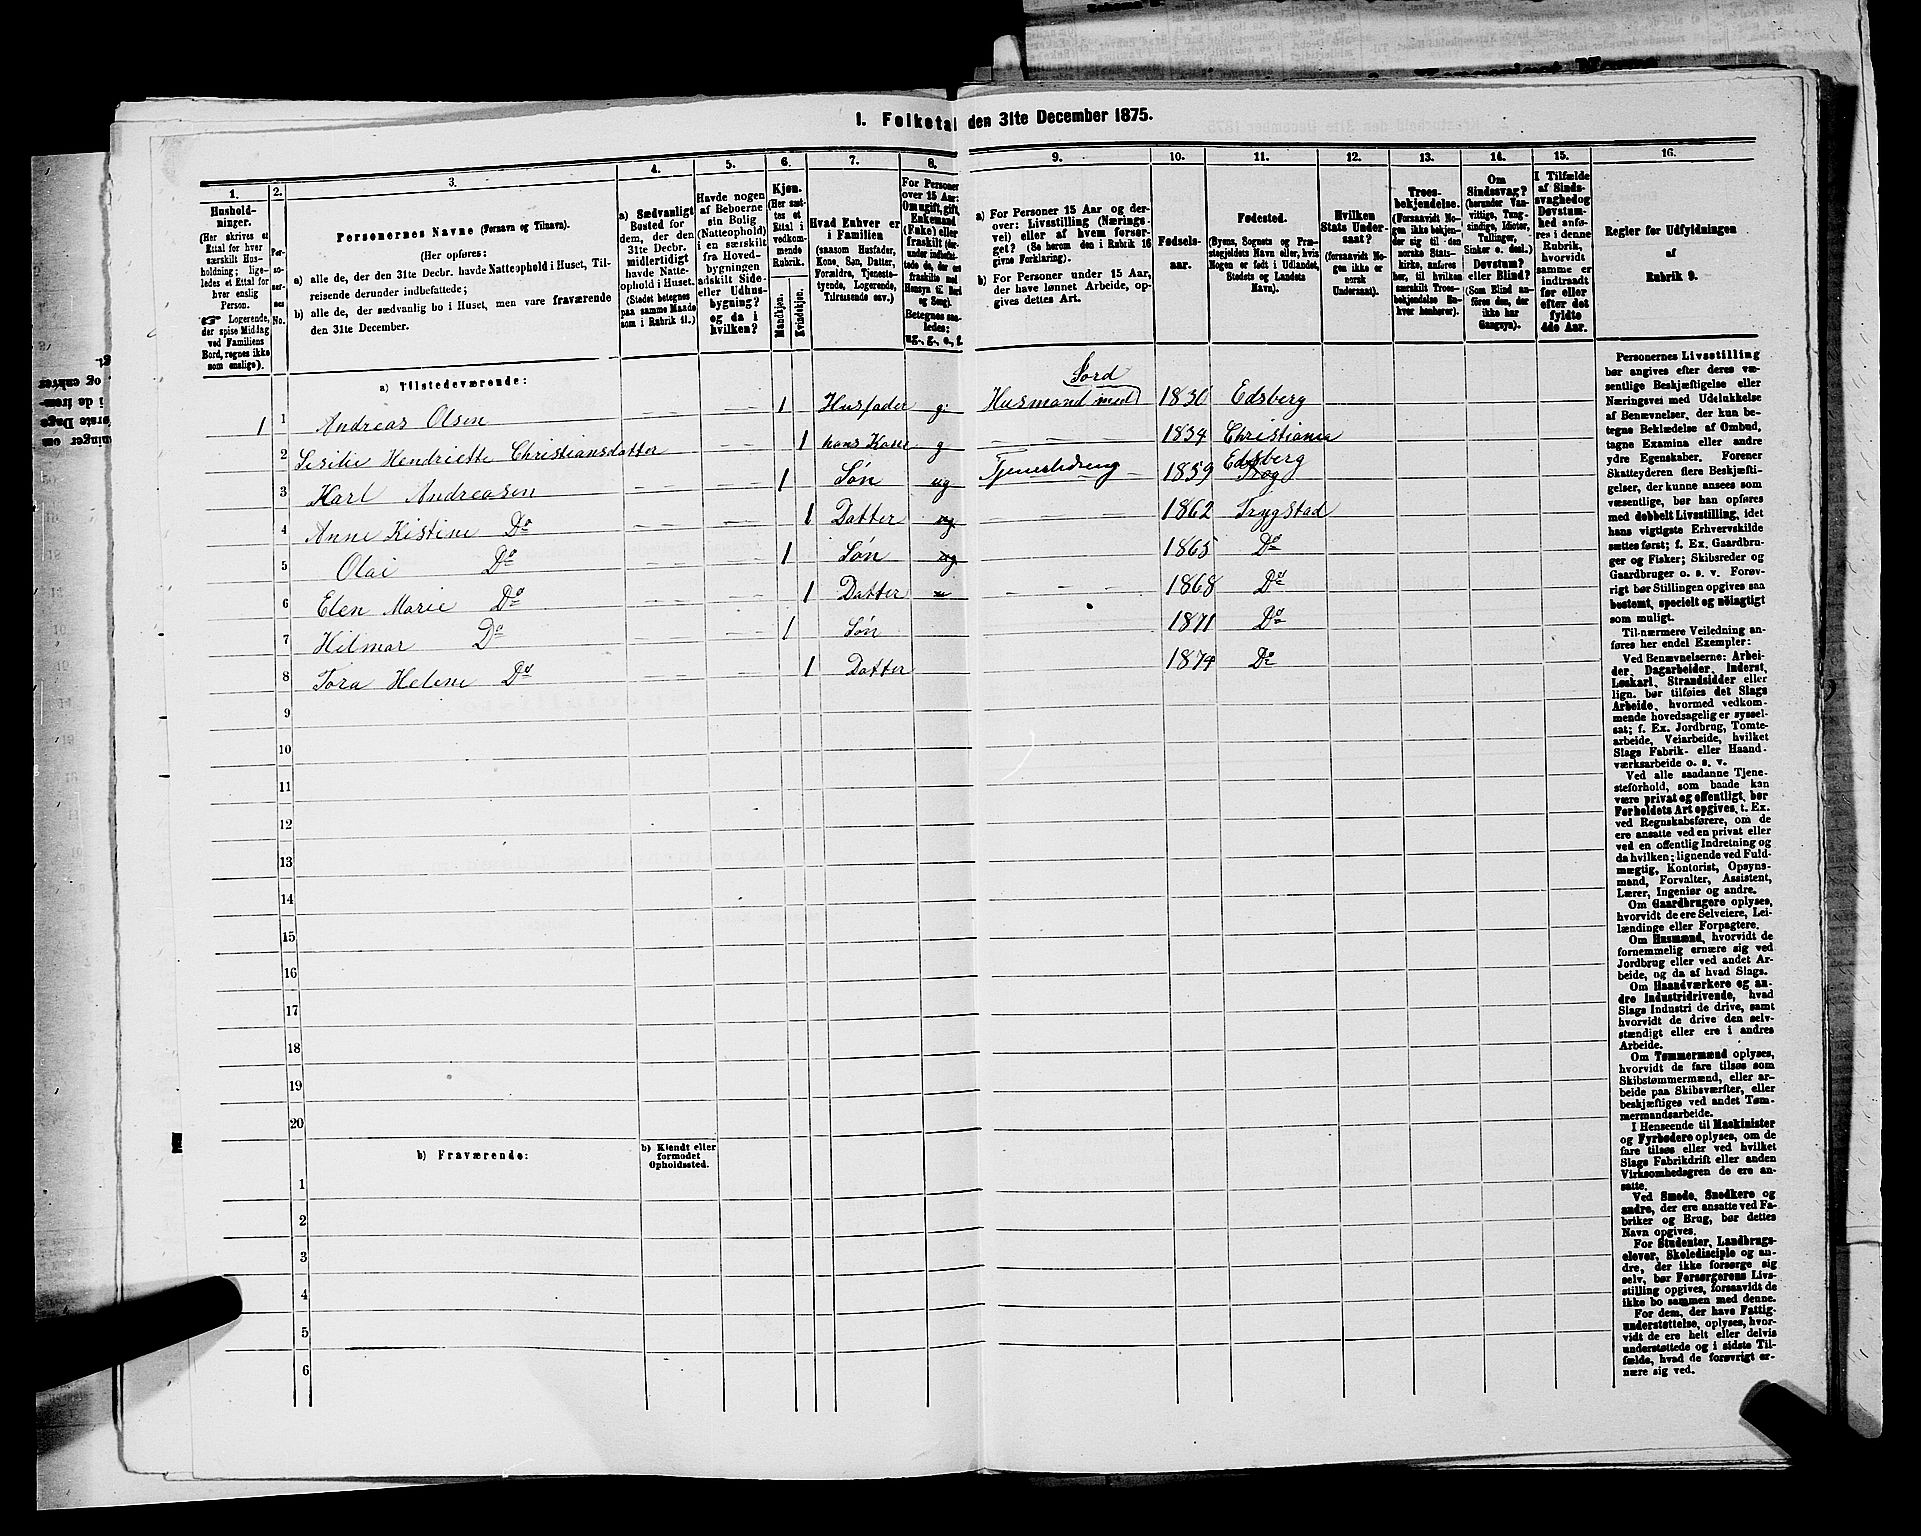 1. Folketal den 31te December 1875.
1.
Hushold-
ninger.
(Her skrives et
Ettal for hver
særskilt Hus-
holdning; lige-
ledes et Ettal for
hver enslig
Person.
☞ Logerende,
der spise Middag
ved Familiens
Bord, regnes ikke
som enslige).
2.
Per-
so-
ner-
nes
No.
3.
Personernes Navne (Fornavn og Tilnavn).
(Her opføres:
a) alle de, der den 31te Decbr. havde Natteophold i Huset, Til-
reisende derunder indbefattede;
b) alle de, der sædvanlig bo i Huset, men vare fraværende
den 31te December.
4.
a) Sædvanligt
Bosted for
dem, der den
31te Decbr.
midlertidigt
havde Natte-
ophold i Huset.
(Stedet betegnes
paa samme Maade
som i Rubrik 11.)
5.
Havde nogen
af Beboerne
sin Bolig
(Natteophold)
i en særskilt
fra Hoved-
bygningen
adskilt Side-
eller Udhus-
bygning?
og da i
hvilken?
6.
Kjøn.
(Her sæt-
tes et
Ettal i
vedkom-
mende
Rubrik.
Mandkjøn.
Kvindekjøn.
7.
Hvad Enhver er
i Familien
(saasom Husfader,
Kone, Søn, Datter,
Forældre, Tjeneste-
tyende, Logerende,
Tilreisende osv.)
8.
For Personer
over 15 Aar:
Om ugift, gift,
Enkemand
(Enke) eller
fraskilt
Betegnes saa-
ledes:
ug., g., e., f.
9.
a) For Personer 15 Aar og der-
over: Livsstilling (Nærings-
vei) eller af hvem forsør-
get? (Se herom den i Rubrik 16
givne Forklaring).
b) For Personer under 15 Aar,
der have lønnet Arbeide, op-
gives dettes Art.
10.
Fødsels-
aar.
11.
Fødested.
(Byens, Sognets og Præ-
stegjeldets Navn eller, hvis
Nogen er født i Udlandet,
Stedets og Landets
Navn.)
12.
Hvilken
Stats Under-
saat?
(forsaavidt No-
gen ikke er
norsk
Undersaat).
13.
Troes-
bekjendelse.
(Forsaavidt No-
gen ikke bekjen-
der sig til den
norske Stats-
kirke, anføres
her, til hvilken
særskilt Troes-
bekjendelse En-
hver henhører).
14.
Om
Sindssvag?
(herunder Van-
vittige, Tung-
sindige, Idioter,
Tullinger,
Sinker o. desl.).
Døvstum?
eller Blind?
(Som Blind an-
føres den, der
ikke har
Gangsyn).
15.
I Tilfælde
af Sinds-
svaghed og
Døvstum-
hed anfø-
res i denne
Rubrik,
hvorvidt
samme er
indtraadt
før eller
efter det
fyldte
4de Aar.
16.
Regler for Udfyldningen
af
Rubrik 9.
a) Tilstedeværende:
1 1 Andreas Olsen 1 Husfader g: Husmand med Jord 1830 Edsberg
2 Sesilie Hendriette Christiansdatter 1 hans Kone g 1834 Christiania
3 Karl Andreasen 1 Søn ug Tjenestedreng 1859 Edsberg
4 Anne Kistine Do 1 Datter ug 1862 Trygstad
5 Olai Do 1 Søn ug 1865 Do
6 Elen Marie Do 1 Datter 1868 Do
7 Hilmar Do 1 Søn 1871 Do
8 Tora Helene Do 1 Datter 1874 Do
9
10
11
12
13
14
15
16
17
18
19
20
b) Fraværende:
b) Kjendt eller
formodet
Opholdssted.
1
2
3
4
5
6
Personernes Livsstilling
bør angives efter deres væ-
sentlige Beskjæftigelse eller
Næringsvei med Udelukkelse
af Benævnelser, der kun be-
tegne Beklædelse af Ombud,
tagne Examina eller andre
ydre Egenskaber. Forener
Skatteyderen flere Beskjæfti-
gelser, der kunne ansees som
væsentlige, bør han opføres
med dobbelt Livsstilling, idet
hans vigtigste Erhvervskilde
sættes først; f. Ex. Gaardbru-
ger og Fisker; Skibsreder og
Gaardbruger o. s. v. Forøv-
rigt bør Stillingen opgives saa
bestemt, specielt og nøiagtigt
som muligt.
Til nærmere Veiledning an-
føres her endel Exempler:
Ved Benævnelserne: Arbei-
der, Dagarbeider, Inderst,
Løskarl, Strandsidder eller
lign. bør tilføies det Slags
Arbeide, hvormed vedkom-
mende hovedsagelig er syssel-
sat; f. Ex. Jordbrug, Tomte-
arbeide, Veiarbeide, hvilket
Slags Fabrik- eller Haand-
værksarbeide o. s. v.
Ved alle saadanne Tjene-
steforhold, som baade kan
være privat og offentligt, bør
Forholdets Art opgives, t. Ex.
ved Regnskabsførere, om de
ere ansatte ved en privat eller
ved en offentlig Indretning og
da hvilken; lignende ved Fuld-
mægtig, Kontorist, Opsyns-
mand, Forvalter, Assistent,
Lærer, Ingeniør og andre.
Om Gaardbrugere oplyses,
hvorvidt de ere Selveiere, Lei-
lændinge eller Forpagtere.
Om Husmænd, hvorvidt de
fornemmelig ernære sig ved
Jordbrug eller ved andet Ar-
beide, og da af hvad Slags.
Om Haandværkere og an-
dre Industridrivende, hvad
Slags Industri de drive, samt
hvorvidt de drive den selv-
stændigt eller ere i andres
Arbeide.
Om Tømmermænd oplyses,
hvorvidt de fare tilsøs som
Skibstømmermænd, eller ar-
beide paa Skibsværfter, eller
beskjæftiges ved andet Tøm-
mermandsarbeide.
I Henseende til Maskinister
og Fyrbødere oplyses, om de
fare tilsøs eller ved hvilket
Slags Fabrikdrift eller anden
Virksomhedsgren de ere an-
satte.
Ved Smede, Snedkere og
andre, der ere ansatte ved Fa-
briker og Brug, bør dettes
Navn opgives.
For Studenter, Landbrugs-
elever, Skoledisciple og an-
dre, der ikke forsørge sig
selv, bør Forsørgerens Livs-
stilling opgives, forsaavidt de
ikke bo sammen med denne.
For dem, der have Fattig-
understøttelse, oplyses, hvor-
vidt de ere helt eller delvis
understøttede og i sidste Til-
fælde, hvad de forøvrigt er-
nære sig ved.